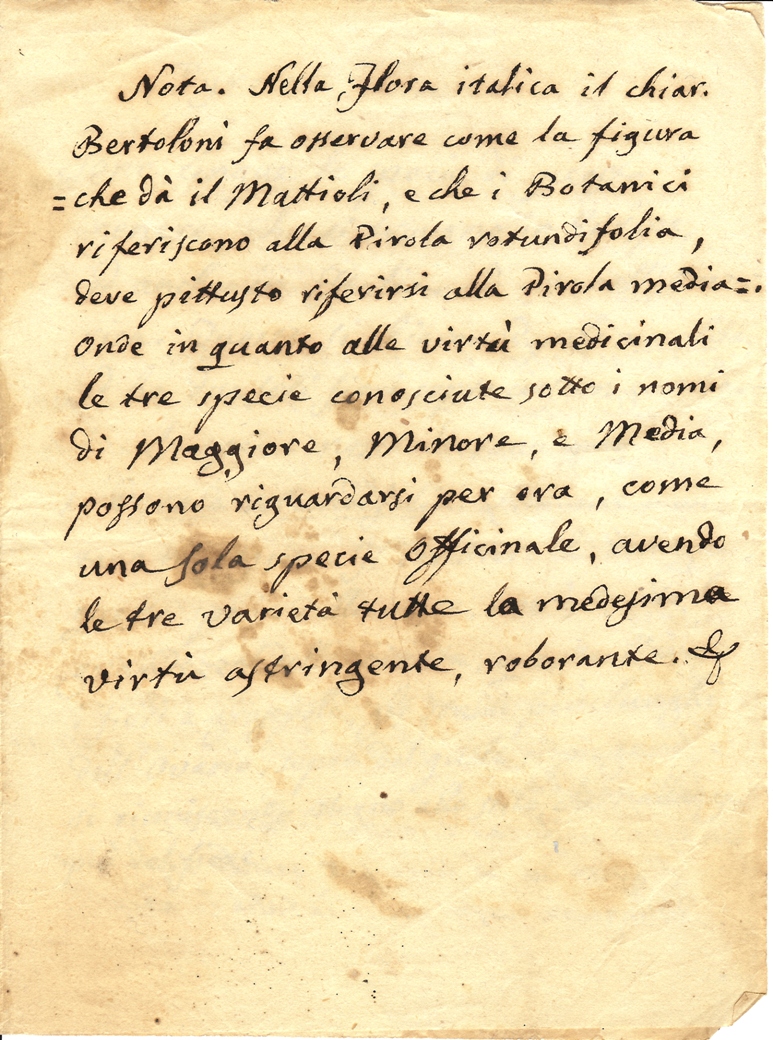 Nota. Nella Flora italica il chiar.
Bertoloni fa osservare come la figura
=che dà il Mattioli, e che i Botanici
riferiscono alla Pirola rotundifolia,
deve pittusto riferirsi alla Pirola media=.
Onde in quanto alle virtù medicinali
le tre specie conosciute sotto i nomi
di Maggiore, Minore, e Media,
possono riguardarsi per ora, come
una sola specie Officinale, avendo
le tre varietà tutte la medesima
virtù astringente, roborante. &